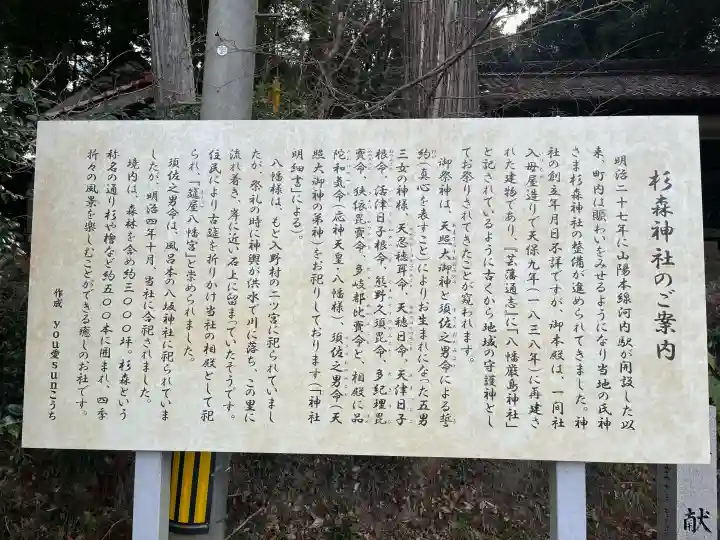 杉森神社のご案内
明治二十七年に山陽本線河内駅が開設した以
来、町内は賑わいをみせるようになり当地の氏神
さま杉森神社の整備が進められてきました。神
社の創立年月日不詳ですが、御本殿は、一間社
入母屋造りで天保九年(一八三八年)に再建さ
れた建物であり、『芸藩通志』に「八幡厳島神社」
と記されているように古くから地域の守護神とし
てお祭りされてきたことが窺われます。
御祭神は、天照大御神と須佐之男命による誓
約(真心を表すこと)によりお生まれになった五男
三女の神様、天忍穂耳命、天穂日命、天津日子
根命、活津日子根命、熊野久須毘命、多紀理毘
賣命、狭依毘賣命、多岐都比賣命と、相殿に品
陀和気命(応神天皇・八幡様)、須佐之男命(天
照大御神の弟神)をお祀りしております(「神社
明細書」による)。
八幡様は、もと入野村の二ッ宮に祀られていまし
たが、祭礼の時に神輿が洪水で川に落ち、この里に
流れ着き、岸に近い石上に留まっていたそうです。
住民により古莚を折りかけ当社の相殿として祀
られ、『莚屋八幡宮』と崇められました。
須佐之男命は、風呂本の八坂神社に祀られていま
したが、明治四年十月、当社に合祀されました。
境内は、森林を含め約三〇〇〇坪。杉森という
称名の通り杉や檜など約五〇〇本に囲まれ、四季
折々の風景を楽しむことができる癒しのお社です。
作成 you愛sunこうち
献